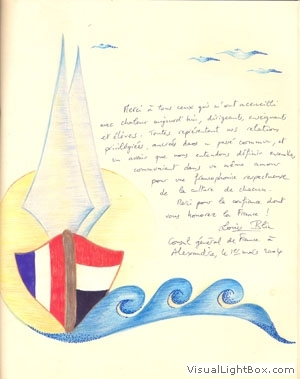 Merci à tous ceux qui m'ont accueilli
avec chaleur aujourd'hui, dirigeants, enseignants
et élèves. Toutes représentent ses relations
privilégiées, ancrées dans un passé commun, et
un avenir que nous entendons définir ensemble,
communiant dans un même amour
pour une francophonie respectueuse
de la culture de chacun.
Merci pour la confiance dont
vous honorez la France !
Louis Blin
Consul général de France à
Alexandrie, le 15 mars 2004
VisualLightBox.com